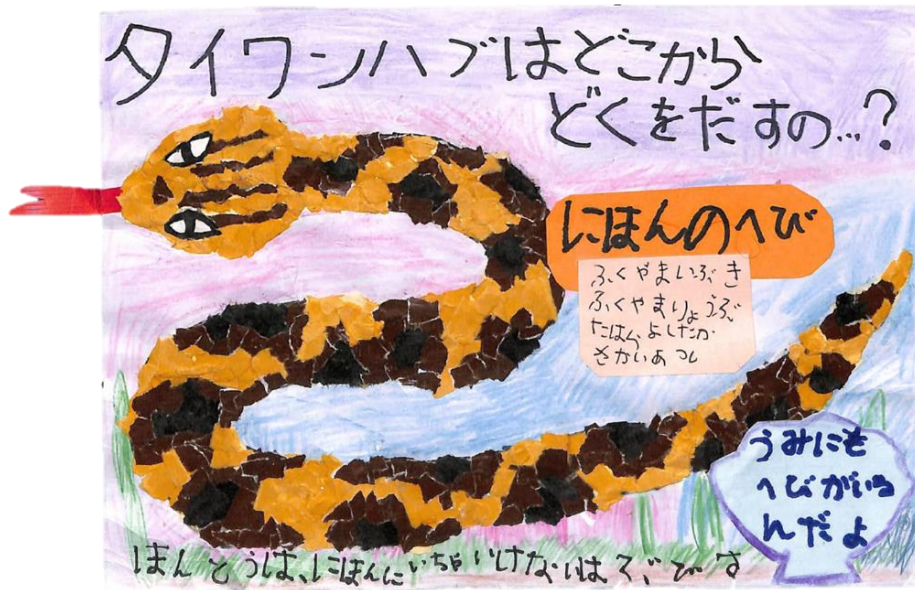 タイワンハブはどこから
どくをだすの…?
にほんのへび
ふくやまいぶき
ふくやまりょうぶ
たはらよしたか
さかいあつし
うみにも
へびがいる
んだよ
ほんとうは、にほんにいちゃいけない